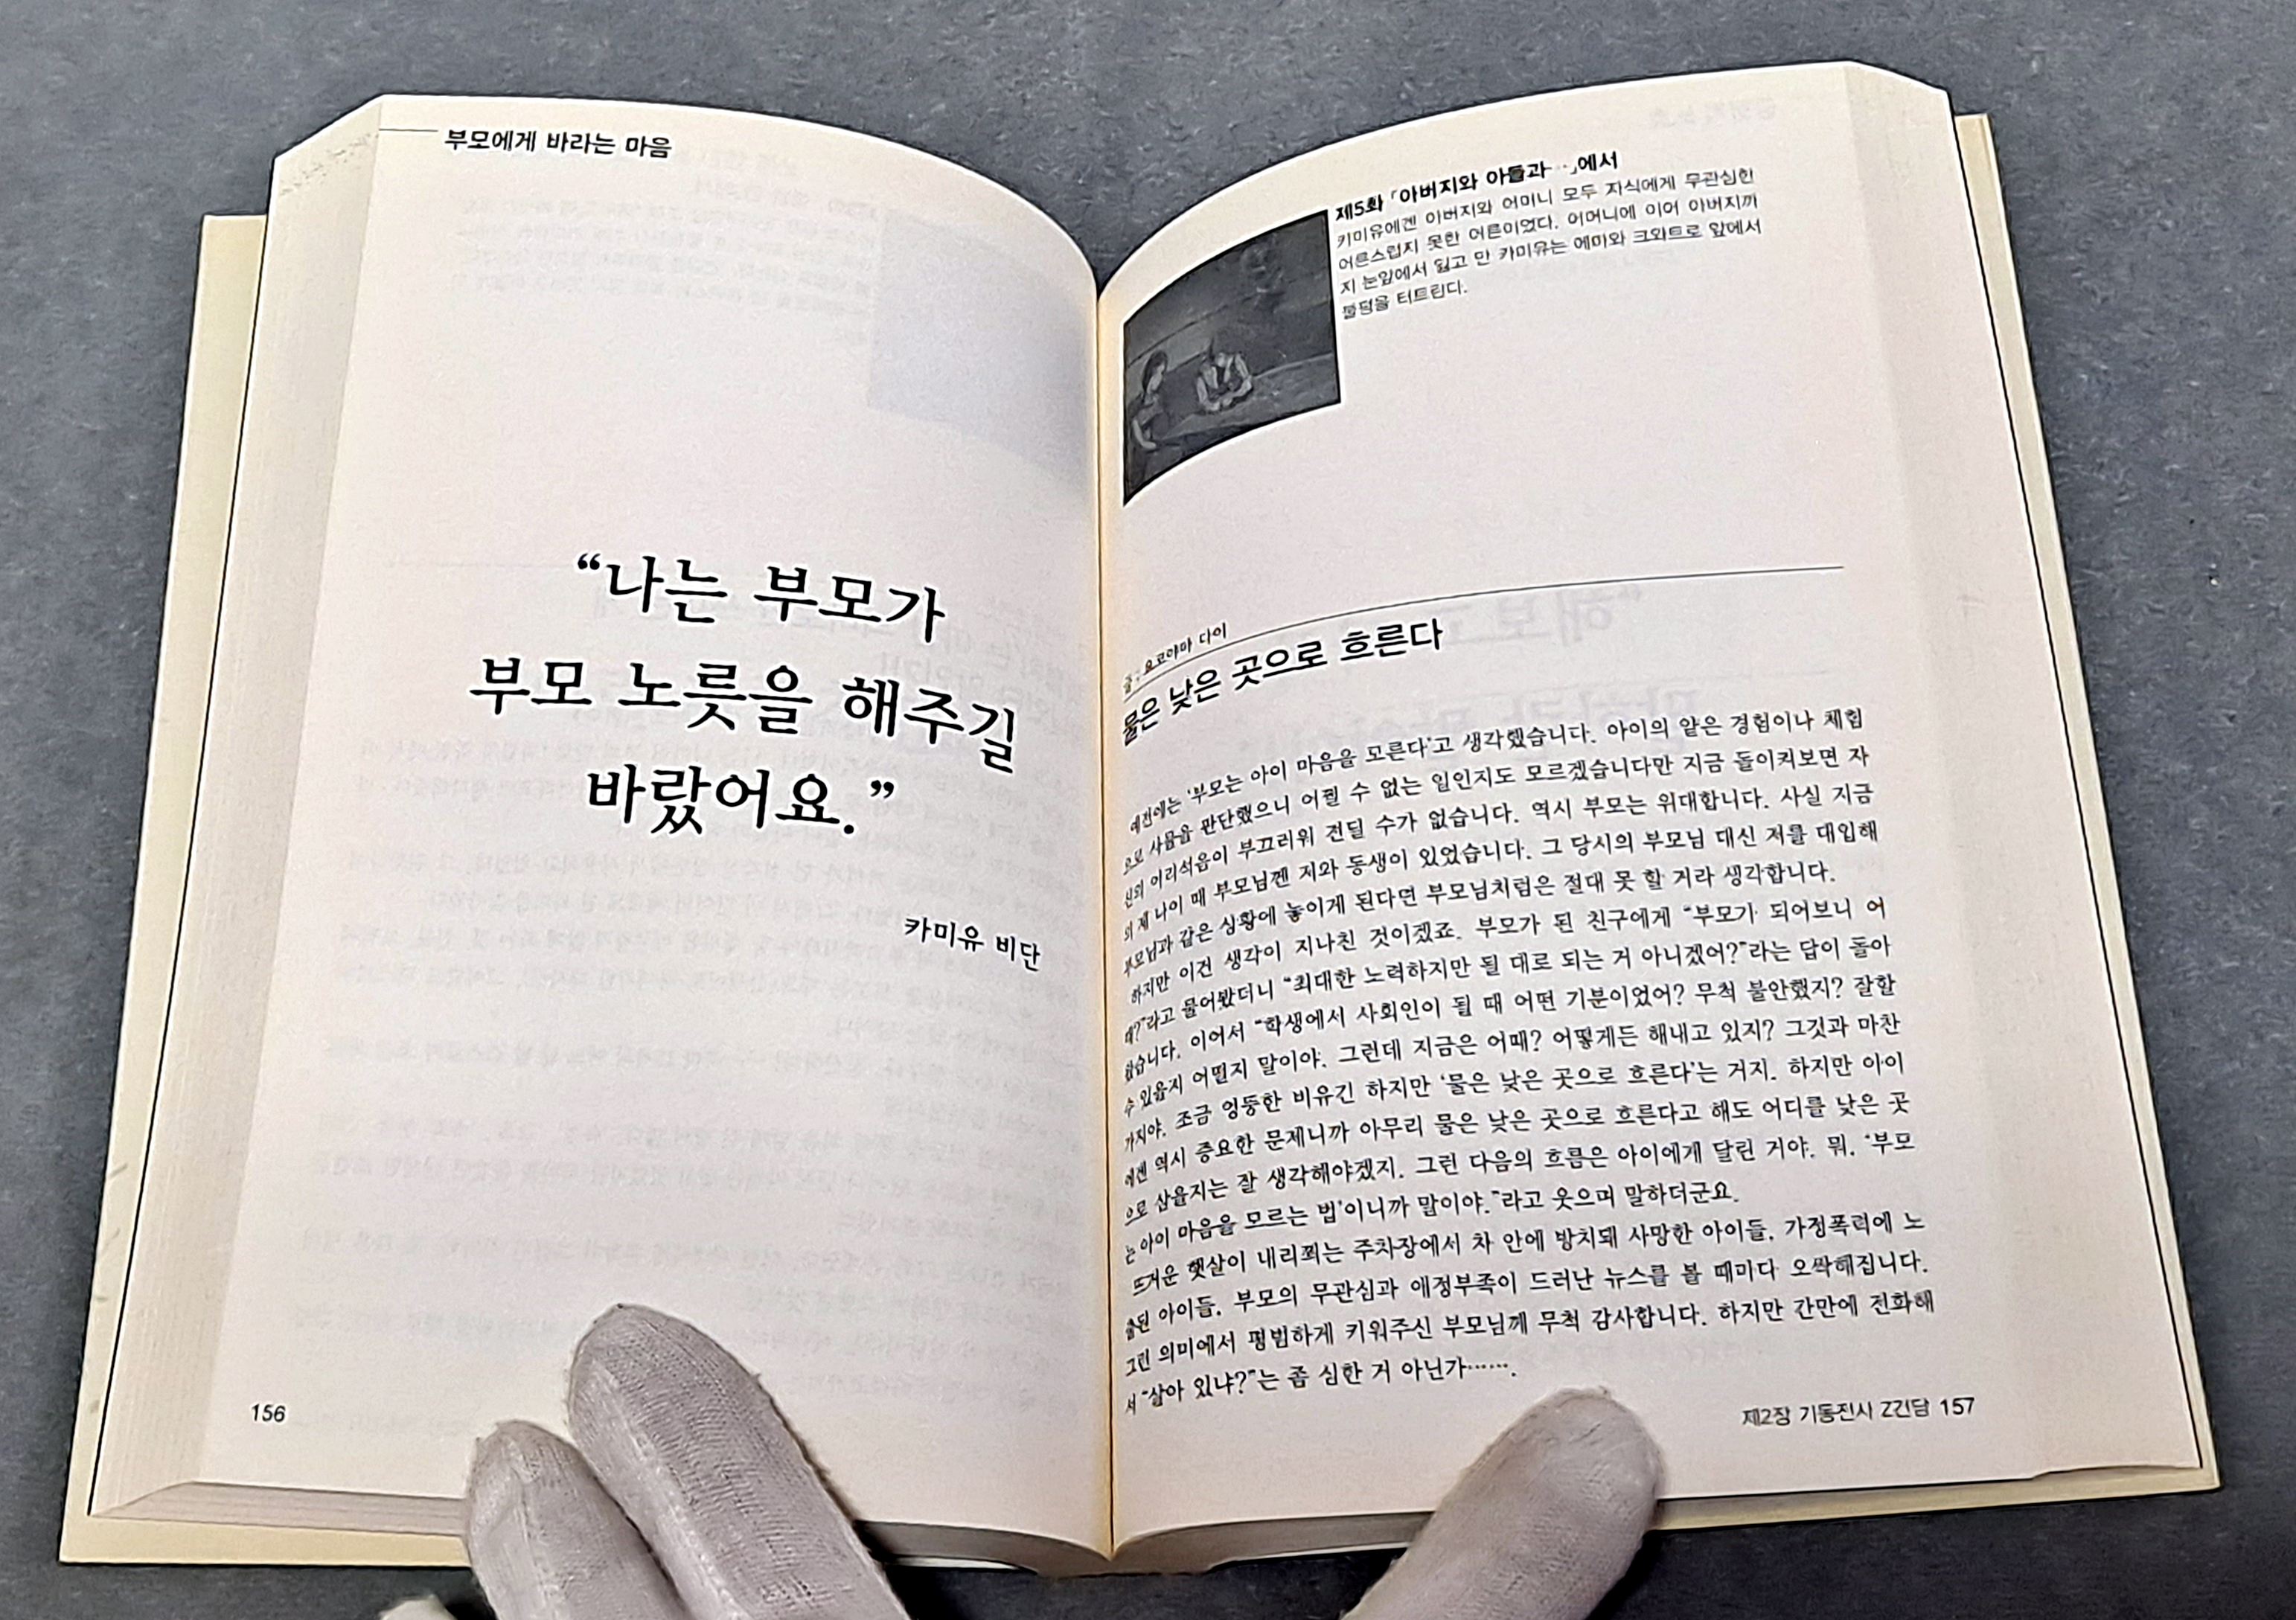 부모에게 바라는 마음
“나는 부모가
부모 노릇을 해주길
바랐어요.”
카미유 비단
156
제5화 「아버지와 아들과…」에서
카미유에겐 아버지와 어머니 모두 자식에게 무관심한
어른스럽지 못한 어른이었다. 어머니에 이어 아버지까
지 눈앞에서 잃고 만 카미유는 에마와 크와트로 앞에서
불평을 터트린다.
글 : 요코야마 다이
물은 낮은 곳으로 흐른다
예전에는 ‘부모는 아이 마음을 모른다’고 생각했습니다. 아이의 얕은 경험이나 체험
으로 사물을 판단했으니 어쩔 수 없는 일인지도 모르겠습니다만 지금 돌이켜보면 자
신의 어리석음이 부끄러워 견딜 수가 없습니다. 역시 부모는 위대합니다. 사실 지금
의 제 나이 때 부모님껜 저와 동생이 있었습니다. 그 당시의 부모님 대신 저를 대입해
부모님과 같은 상황에 놓이게 된다면 부모님처럼은 절대 못 할 거라 생각합니다.
하지만 이건 생각이 지나친 것이겠죠. 부모가 된 친구에게 “부모가 되어보니 어
때?”라고 물어봤더니 “최대한 노력하지만 될 대로 되는 거 아니겠어?”라는 답이 돌아
왔습니다. 이어서 “학생에서 사회인이 될 때 어떤 기분이었어? 무척 불안했지? 잘할
수 있을지 어떨지 말이야. 그런데 지금은 어때? 어떻게든 해내고 있지? 그것과 마찬
가지야. 조금 엉뚱한 비유긴 하지만 ‘물은 낮은 곳으로 흐른다’는 거지. 하지만 아이
에겐 역시 중요한 문제니까 아무리 물은 낮은 곳으로 흐른다고 해도 어디를 낮은 곳
으로 삼을지는 잘 생각해야겠지. 그런 다음의 흐름은 아이에게 달린 거야. 뭐, ‘부모
는 아이 마음을 모르는 법’이니까 말이야.”라고 웃으며 말하더군요.
뜨거운 햇살이 내리쬐는 주차장에서 차 안에 방치돼 사망한 아이들, 가정폭력에 노
출된 아이들. 부모의 무관심과 애정부족이 드러난 뉴스를 볼 때마다 오싹해집니다.
그런 의미에서 평범하게 키워주신 부모님께 무척 감사합니다. 하지만 간만에 전화해
서 “살아 있냐?”는 좀 심한 거 아닌가…….
제2장 기동전사 Z건담 157